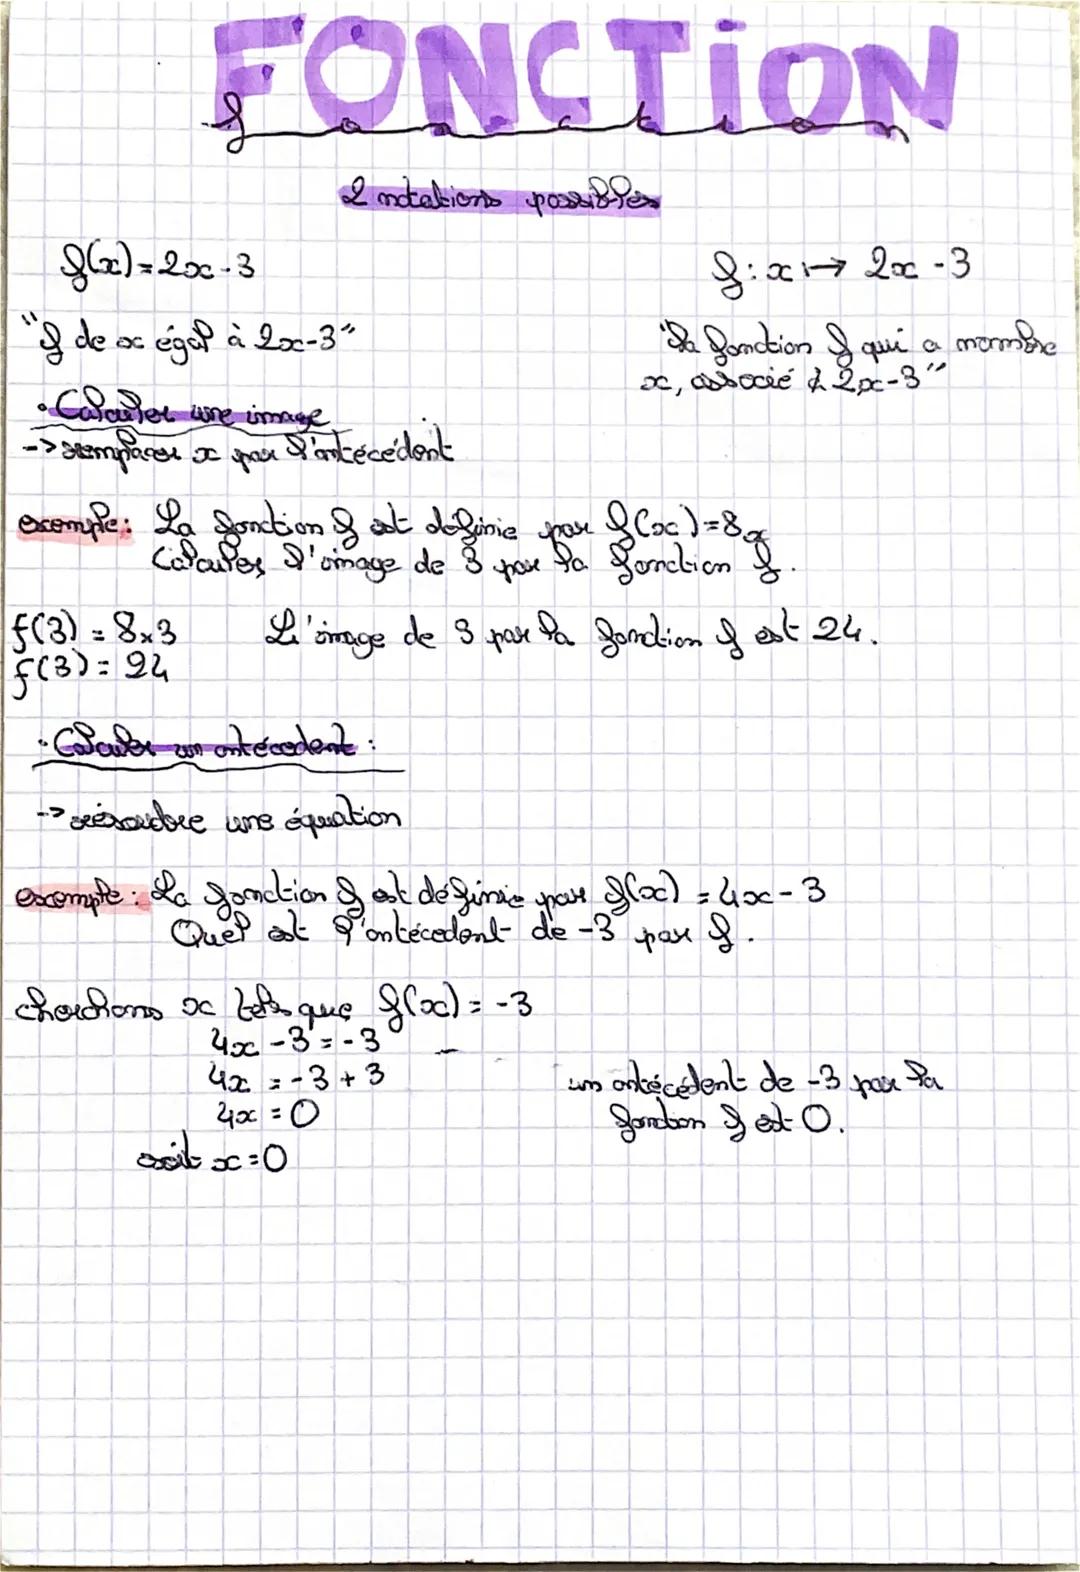 FONCTION
fonction
2 notations possibles
f(x) = 2x - 3
f : x ↦ 2x - 3
"f de x égal à 2x-3"
"la fonction f qui a nombre
x, associé 2x-3"
• Calculer une image
-> remplacer x par l'antécédent
exemple : La fonction f est définie par f(x) = 8x
Calculer l'image de 3 par la fonction f.
f(3) = 8x3
L'image de 3 par la fonction f est 24.
f(3) = 24
• Calculer un antécedent :
-> résoudre une équation
exemple : La fonction f est définie par f(x) = 4x - 3
Quel est l'antécedent de -3 par f.
cherchons x tels que f(x) = -3
4x - 3 = -3
4x = -3 + 3
4x = 0
soit x = 0
un antécédent de -3 par la
fonction f est 0.